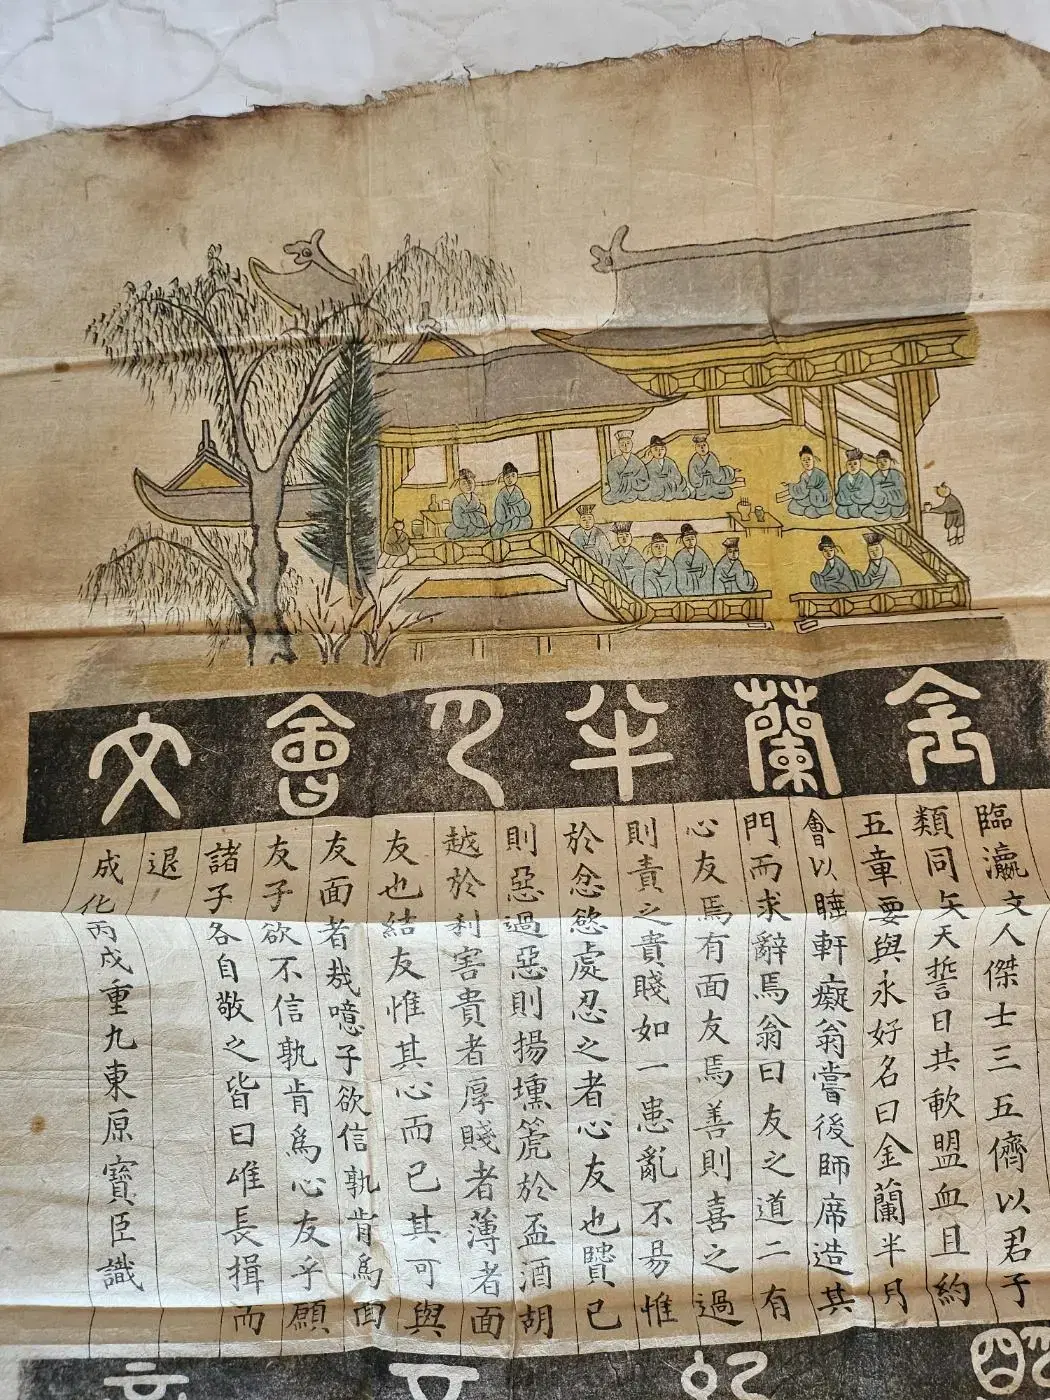 金蘭半月會文
臨瀛文人傑士三五儕以君子
類同矢天誓日共歃盟血且約
五章要與永好名曰金蘭半月
會以睡軒癡翁嘗後師席造其
門而求辭焉翁曰友之道二有
心友焉有面友焉善則喜之過
則責之貴賤如一患亂不易惟
於忿慾處忍之者心友也
則惡過惡則揚壎篪於盃酒胡
越於利害貴者厚賤者薄者面
友也結友惟其心而已其可與
友面者哉噫子欲信孰肯爲面
友子欲不信孰肯爲心友乎願
諸子各自敬之皆曰唯長揖而
退
成化丙戌重九東原寶臣識